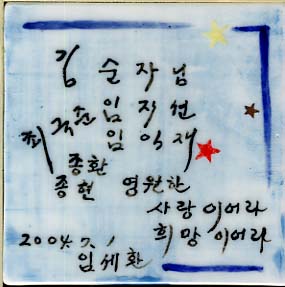 김 순 자 님
최 국 손 임 지 선
임 익 재
종환
종현 영원한
사랑 이어라
희망 이어라
2004. 7. 1
임세환